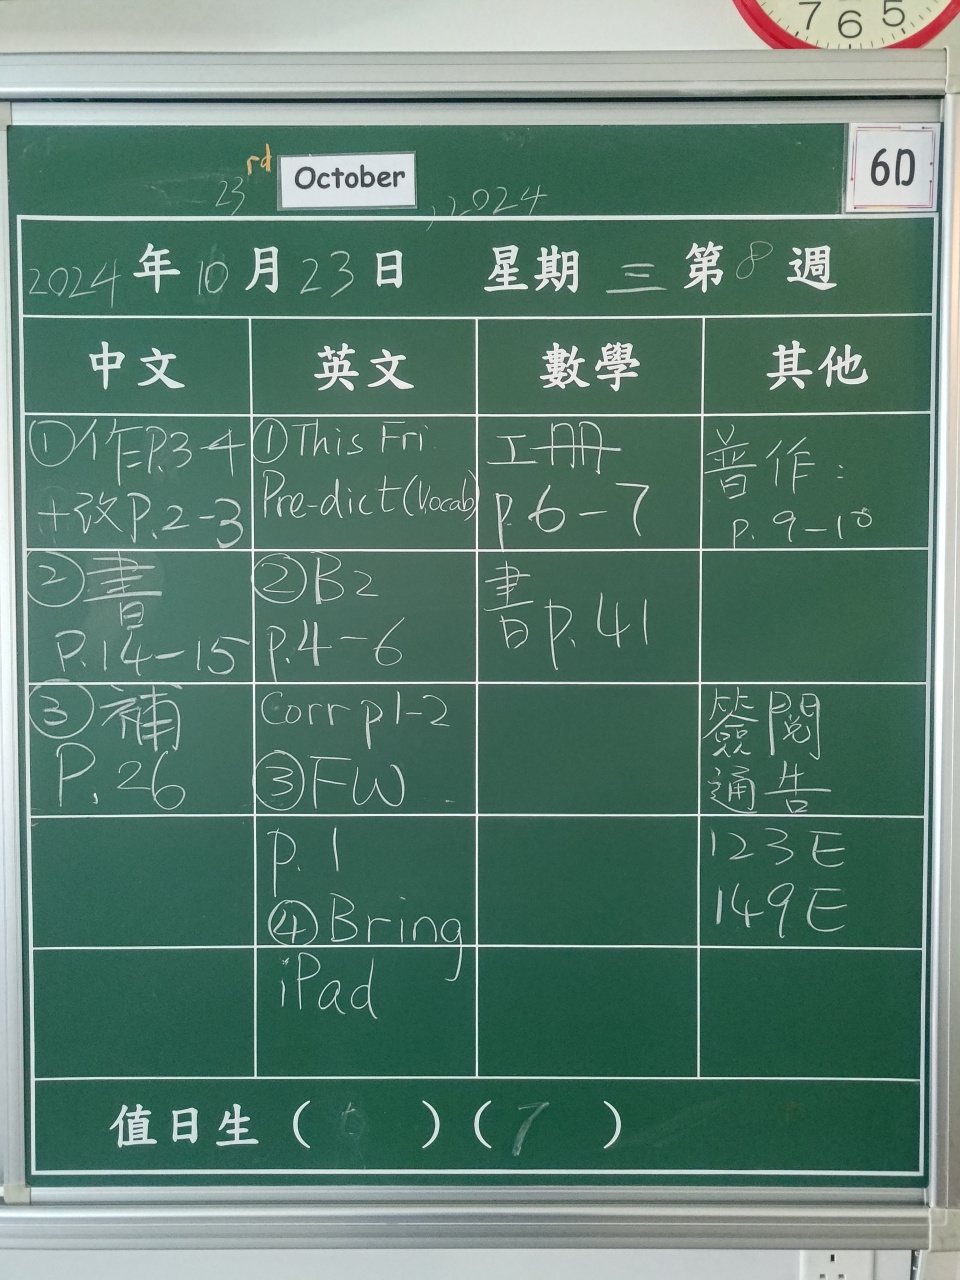 7 6 5
23rd October, 2024
6D
2024年10月23日 星期三第8週
中文 英文 數學 其他
①作P.3-4
+改P.2-3
②書
P.14-15
③補
P.26
①This Fri
Pre-dict(Vocab)
②B2
p.4-6
Corr p1-2
③FW
p.1
④Bring
iPad
工冊
p.6-7
書p.41
普作:
p.9-10
簽閱
通告
123E
149E
值日生(6)(7)